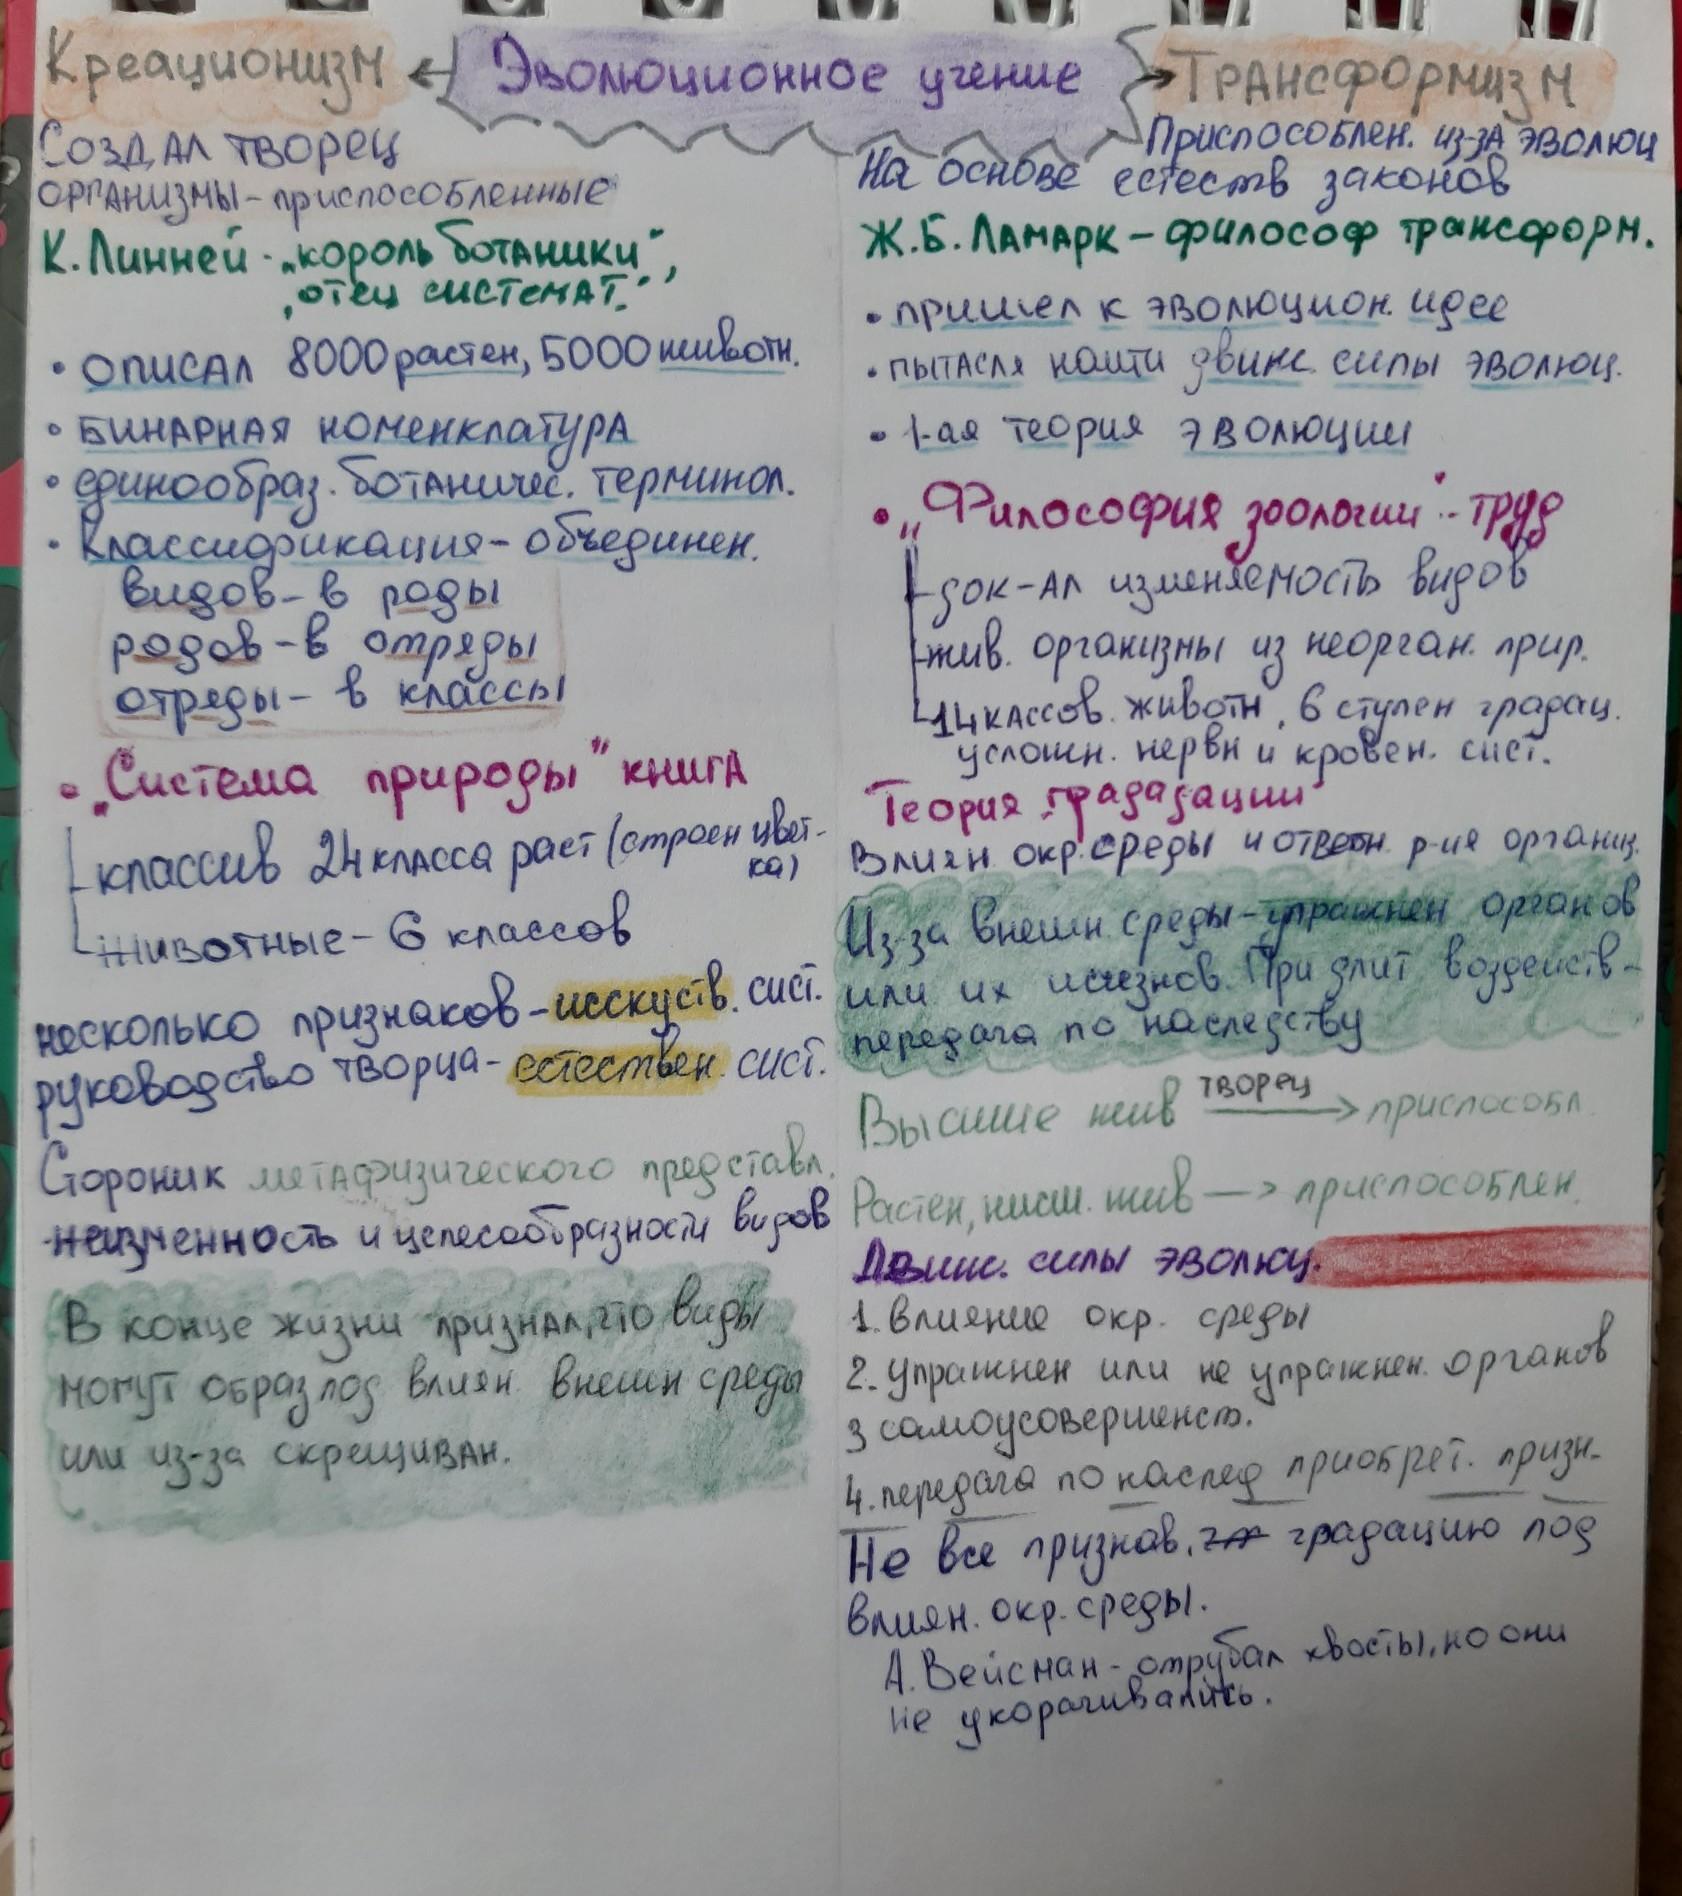 Эволюционное учение
Креационизм
Создал творец
организмы - приспособленные
К. Линней - „король ботаники",
„отец системат."
• описал 8000 растен, 5000 животн.
• бинарная номенклатура
• единообраз. ботаничес. терминол.
• Классификация - объединен.
видов - в роды
родов - в отряды
отряды - в классы
• „Система природы" книга
классив 24 класса раст (строен цвет-
ка)
животные - 6 классов
несколько признаков - исскуств. сист.
руководство творца - естествен. сист.
Стороник метафизического представл.
неизменность и целесообразности видов
В конце жизни признал, что виды
могут образ под влиян. внешн среды
или из-за скрещиван.
Трансформизм
Приспособлен. из-за эволюц
На основе естеств законов
Ж.Б. Ламарк - философ трансформ.
• пришел к эволюцион. идее
• пытасля найти движ. силы эволюц.
• 1-ая теория эволюции
• „Философия зоологии" - труд
док-ал изменяемость видов
жив. организмы из неорган. прир.
14 классов. животн, 6 ступен градац.
усложн. нервн и кровен. сист.
Теория „грададации"
Влиян. окр. среды и ответн р-ия организ.
Из-за внешн. среды - упражнен органов
или их исчезнов. При длит воздейств -
передача по наследству
Высшие жив творец → приспособл.
Растен, низш. жив → приспособлен.
Движ. силы эволюц.
1. влияние окр. среды
2. упражнен или не упражнен. органов
3 самоусовершенст.
4. передача по наслед приобрет. призн.
Не все признав. градацию под
влиян. окр. среды.
А. Вейсман - отрубал хвосты, но они
не укорачивались.